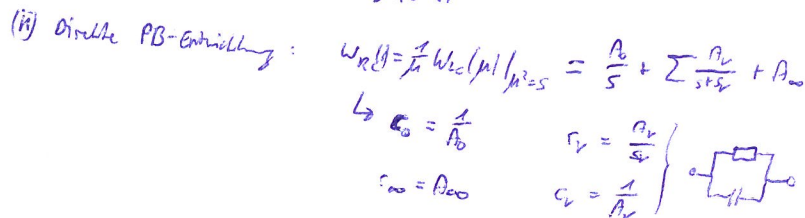 (ii) Direkte PB-Entwicklung : W_RC(s) = 1/μ W_LC(μ)|_μ²=s = A_0/s + Σ A_ν/(s+s_ν) + A_∞
↳ c_0 = 1/A_0 r_ν = A_ν/s_ν
r_∞ = A_∞ c_ν = 1/A_ν